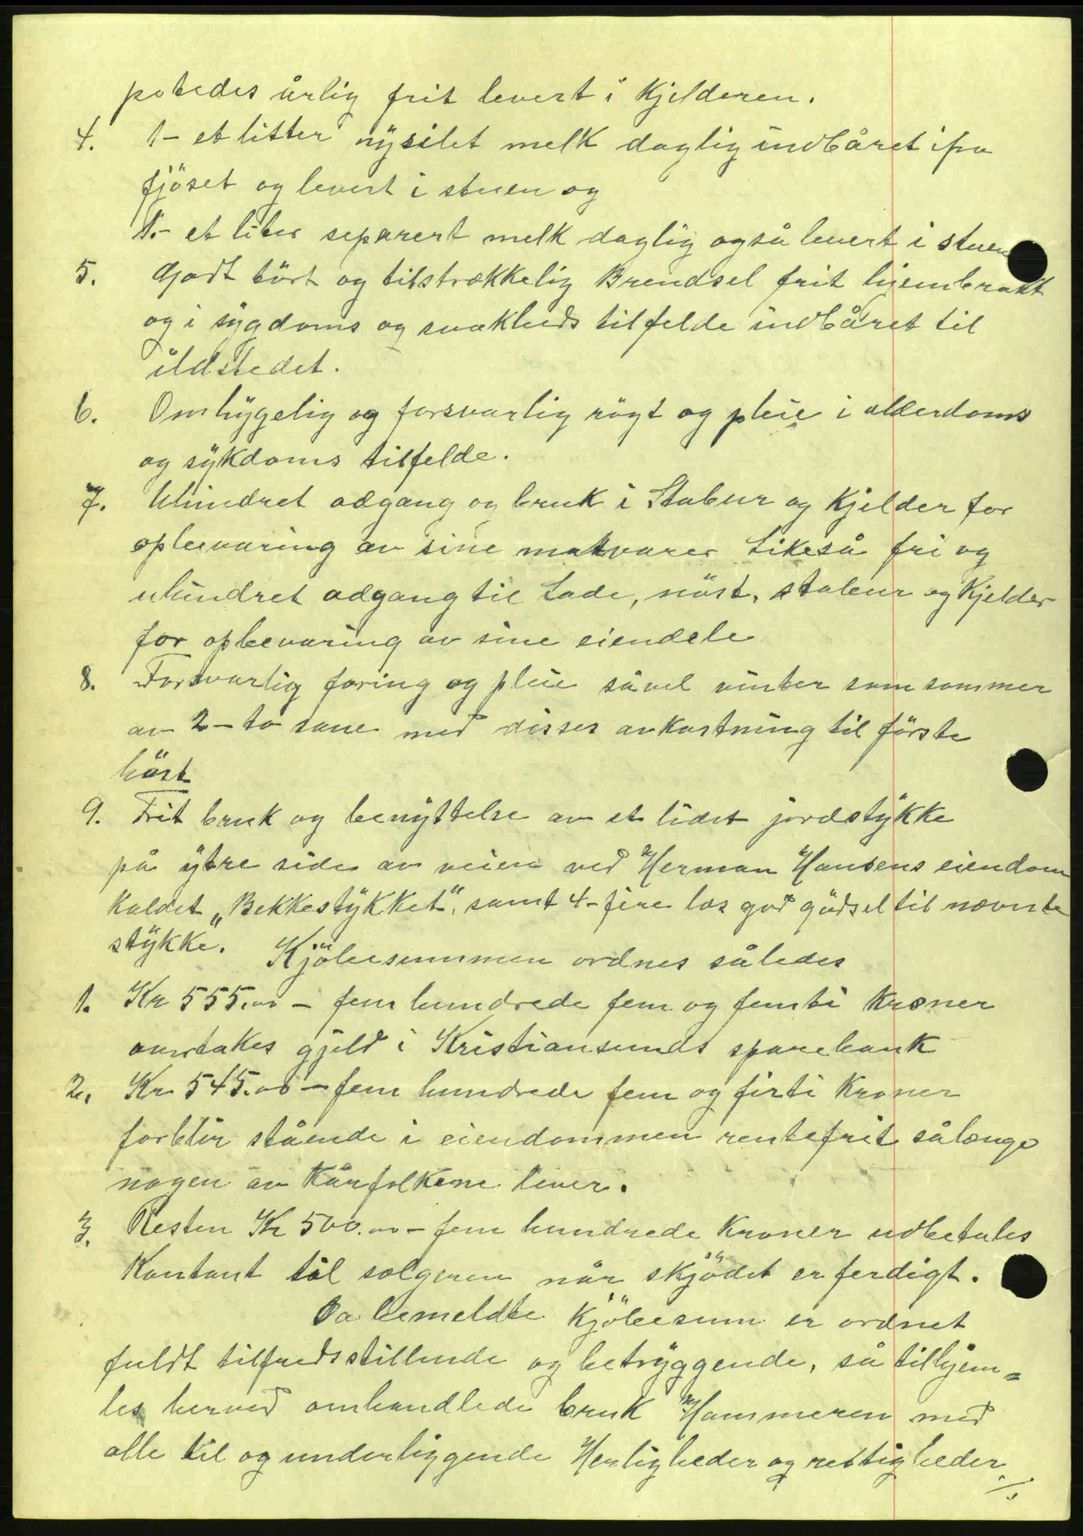 potedes årlig frit levert i Kjelderen.
4. 1- et litter nysilet melk daglig indbåret ifra
fjöset og levert i stuen og
1.- et liter separert melk daglig også levert i stuen
5. Godt tört og tilstrækkelig Brendsel frit hjembrakt
og i sygdoms og svakheds tilfelde indbåret til
ildstedet.
6. Omhygelig og forsvarlig rögt og pleie i alderdoms
og sykdoms tilfelde.
7. Uhindret adgang og bruk i Stabur og Kjelder for
opbevaring av sine matvarer likeså fri og
uhindret adgang til Lade, nöst, stabur og Kjelder
for opbevaring av sine eiendele
8. Forsvarlig foring og pleie såvel vinter som sommer
av 2- to saue med disses avkastning til förste
höst
9. Frit bruk og benyttelse av et lidet jordstykke
på ytre side av veien ved Herman Hansens eiendom
kaldet „Bekkestykket", samt 4- fire las god gödsel til nævnte
stykke". Kjöbesummen ordnes således
1. Kr 555.00 - fem hundrede fem og femti Kroner
overtakes gjeld i Kristiansunds sparebank
2. Kr 545.00 - fem hundrede fem og firti Kroner
forblir stående i eiendommen rentefrit sålænge
nogen av Kårfolkene lever.
3. Resten Kr 500.00 - fem hundrede Kroner udbetales
Kontant til selgeren når skjödet er ferdigt.
Da bemeldte Kjöbesum er ordnet
fuldt tilfredsstillende og betryggende, så tilhjem=
les herved omhandlede bruk Hammeren med
alle til og underliggende Herligheder og rettigheder
./.